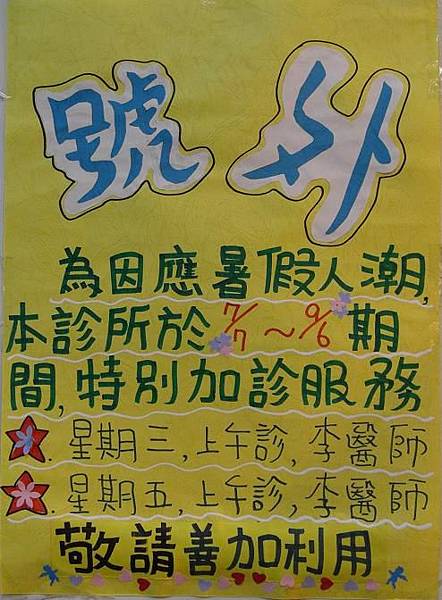 號外
為因應暑假人潮,
本診所於7/7~9/6期
間,特別加診服務
.星期三,上午診,李醫師
.星期五,上午診,李醫師
敬請善加利用